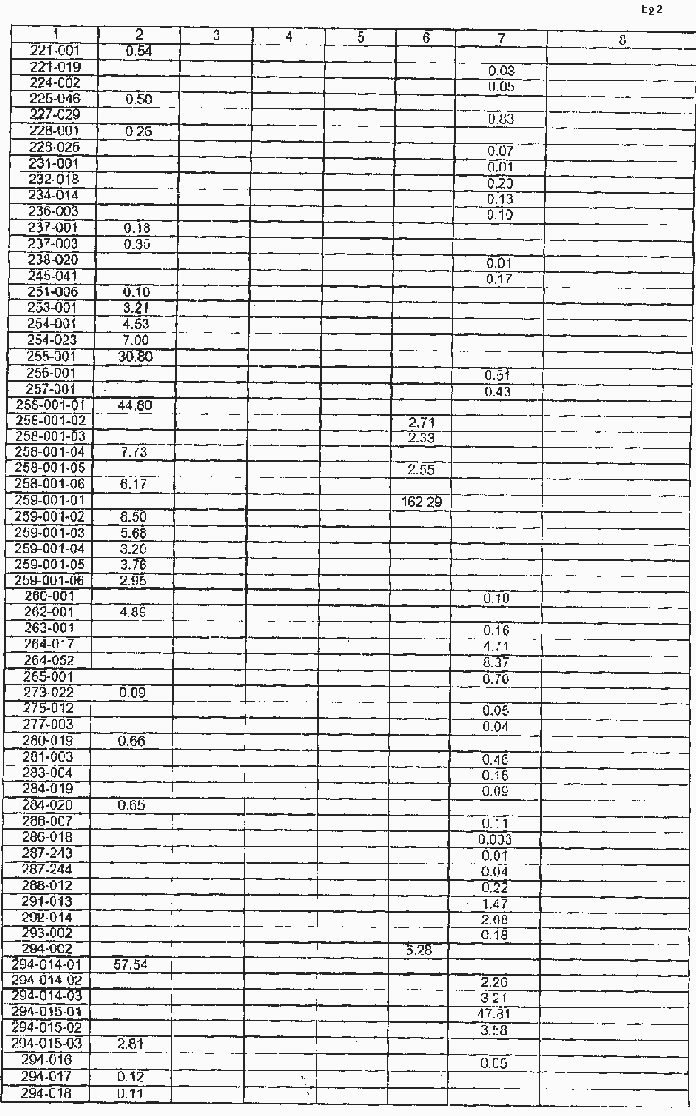 1 2 3 4 5 6 7 8
221-001 0.54
221-019 0.03
224-002 0.05
225-046 0.50
227-029 0.83
228-001 0.25
228-026 0.07
231-001 0.01
232-018 0.20
234-014 0.13
236-003 0.10
237-001 0.18
237-003 0.35
238-020 0.01
245-041 0.17
251-006 0.10
253-001 3.21
254-001 4.53
254-023 7.00
255-001 30.80
256-001 0.51
257-001 0.43
258-001-01 44.80
258-001-02 2.71
258-001-03 2.33
258-001-04 7.73
258-001-05 2.55
258-001-06 6.17
259-001-01 162.29
259-001-02 6.50
259-001-03 5.68
259-001-04 3.20
259-001-05 3.76
259-001-06 2.95
260-001 0.10
262-001 4.85
263-001 0.16
264-017 4.71
264-052 8.37
265-001 0.70
273-022 0.09
275-012 0.05
277-003 0.04
280-019 0.66
281-003 0.46
283-004 0.16
284-019 0.09
284-020 0.65
286-007 0.11
286-018 0.003
287-243 0.01
287-244 0.04
288-012 0.22
291-013 1.47
292-014 2.08
293-002 0.18
294-002 5.28
294-014-01 57.54
294-014-02 2.26
294-014-03 3.21
294-015-01 47.81
294-015-02 3.58
294-015-03 2.81
294-016 0.05
294-017 0.12
294-018 0.11